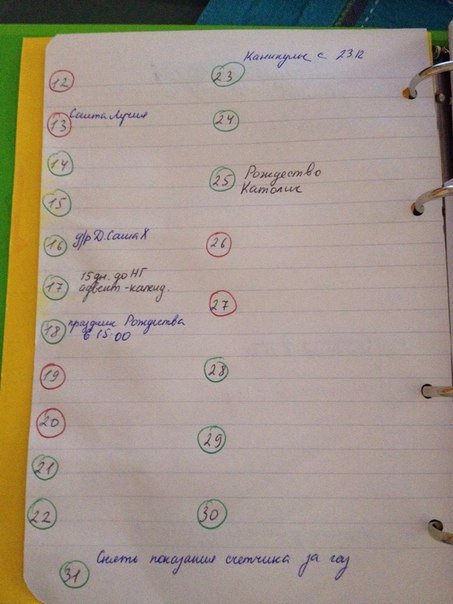 Каникулы с 23.12
12
13 Санта Лучия
14
15
16 д/р Д. Саша Х
17 15 дн. до НГ
адвент-календ.
18 праздник Рождества
в 15:00
19
20
21
22
23
24
25 Рождество
Католич
26
27
28
29
30
31 Снять показания счетчика за газ